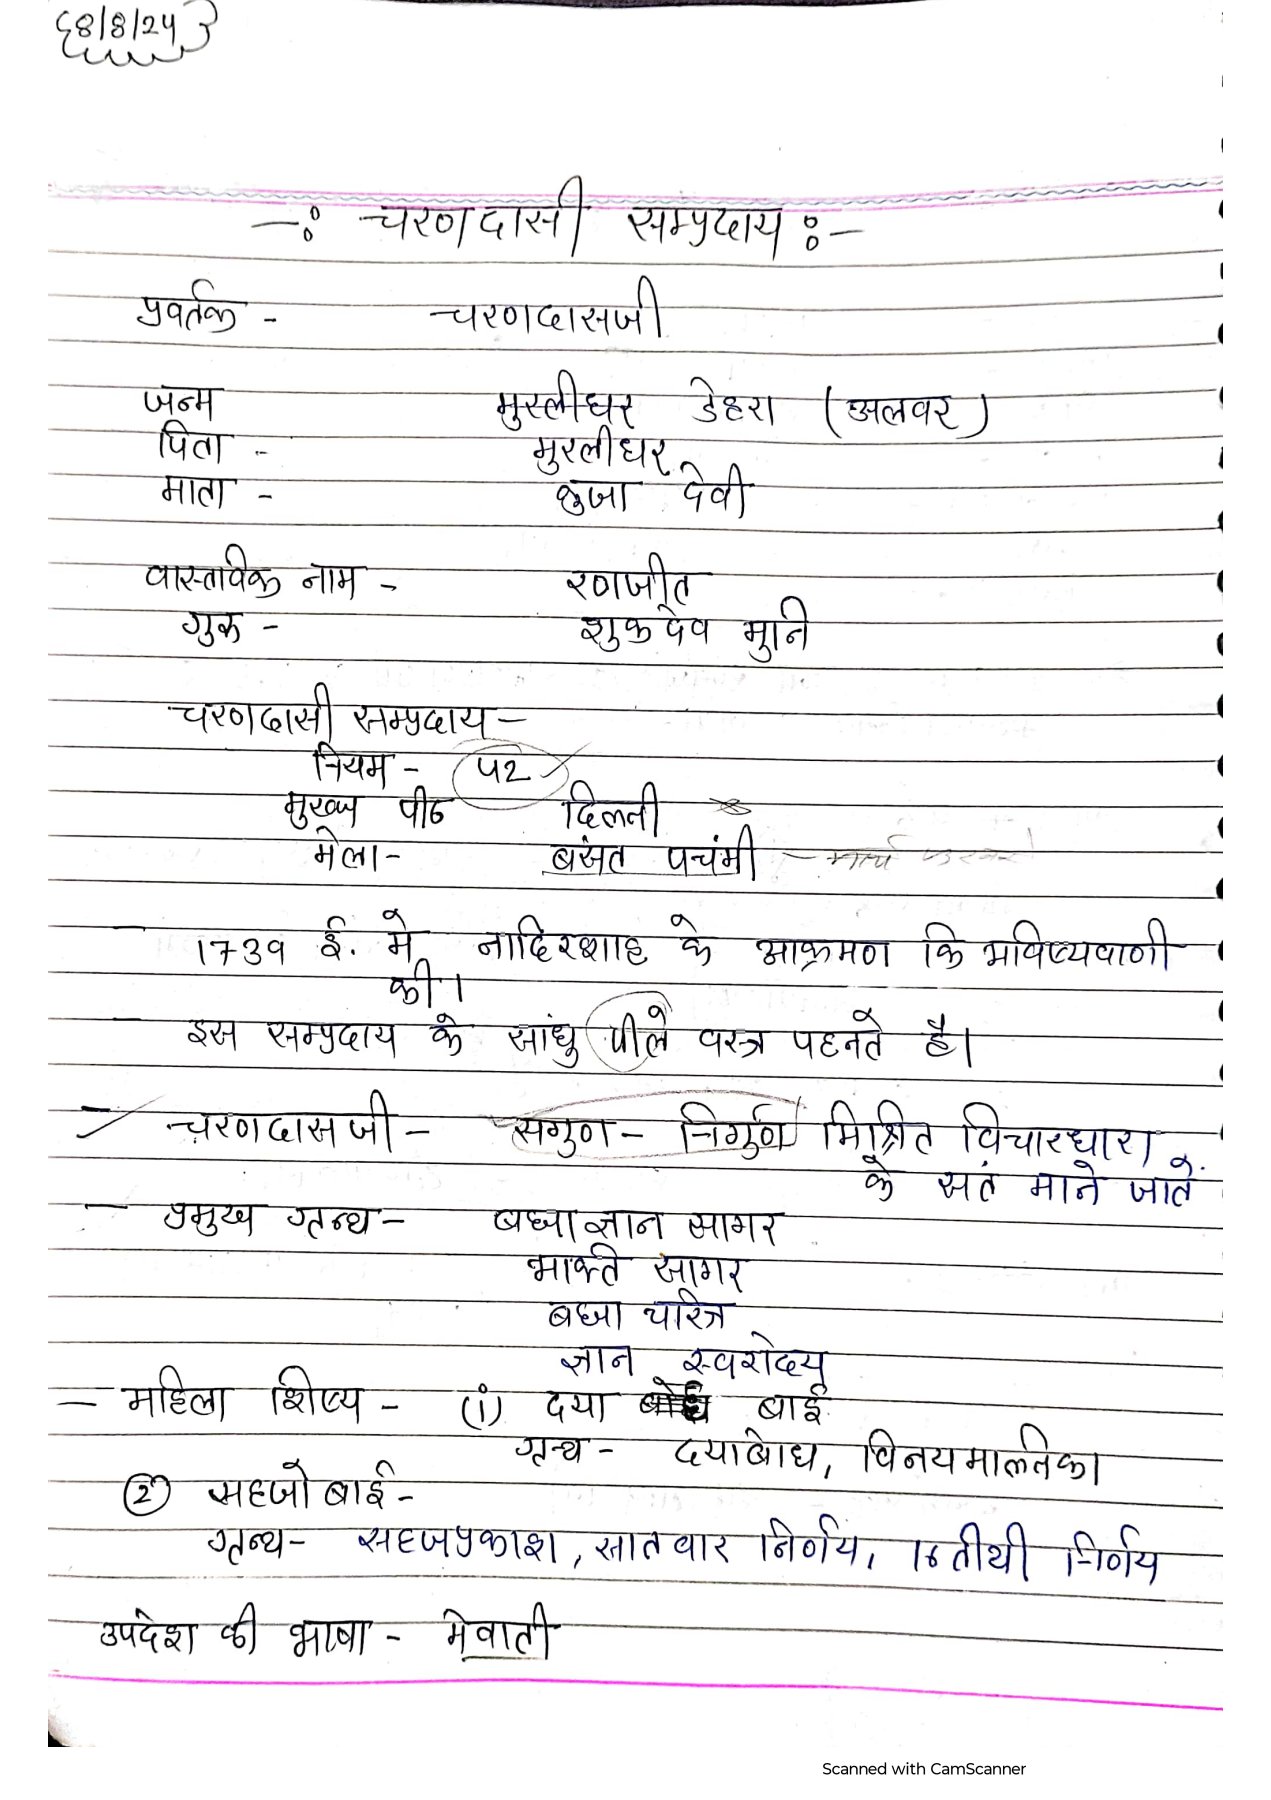 8/8/24
-: चरणदासी सम्प्रदाय :-
प्रवर्तक - चरणदासजी
जन्म मुरलीधर डेहरा (अलवर)
पिता - मुरलीधर
माता - कुजा देवी
वास्तविक नाम - रणजीत
गुरू - शुकदेव मुनि
चरणदासी सम्प्रदाय -
नियम - 42
मुख्य पीठ दिल्ली
मेला - बंसत पचंमी -
- 1739 ई. मे नादिरशाह के आक्रमण कि भविष्यवाणी
की।
- इस सम्प्रदाय के सांधु पीले वस्त्र पहनते है।
- चरणदासजी - सगुण - निर्गुण मिश्रित विचारधारा
के सतं माने जाते
- प्रमुख ग्रन्थ - बह्मा ज्ञान सागर
भक्ति सागर
बह्मा चरित्र
ज्ञान स्वरोदय
- महिला शिष्य - (i) दया बाई
ग्रन्थ - दयाबोध, विनयमालिका
(2) सहजो बाई -
ग्रन्थ - सहजप्रकाश, सातवार निर्णय, 16 तीथी निर्णय
उपदेश की भाषा - मेवाती
Scanned with CamScanner